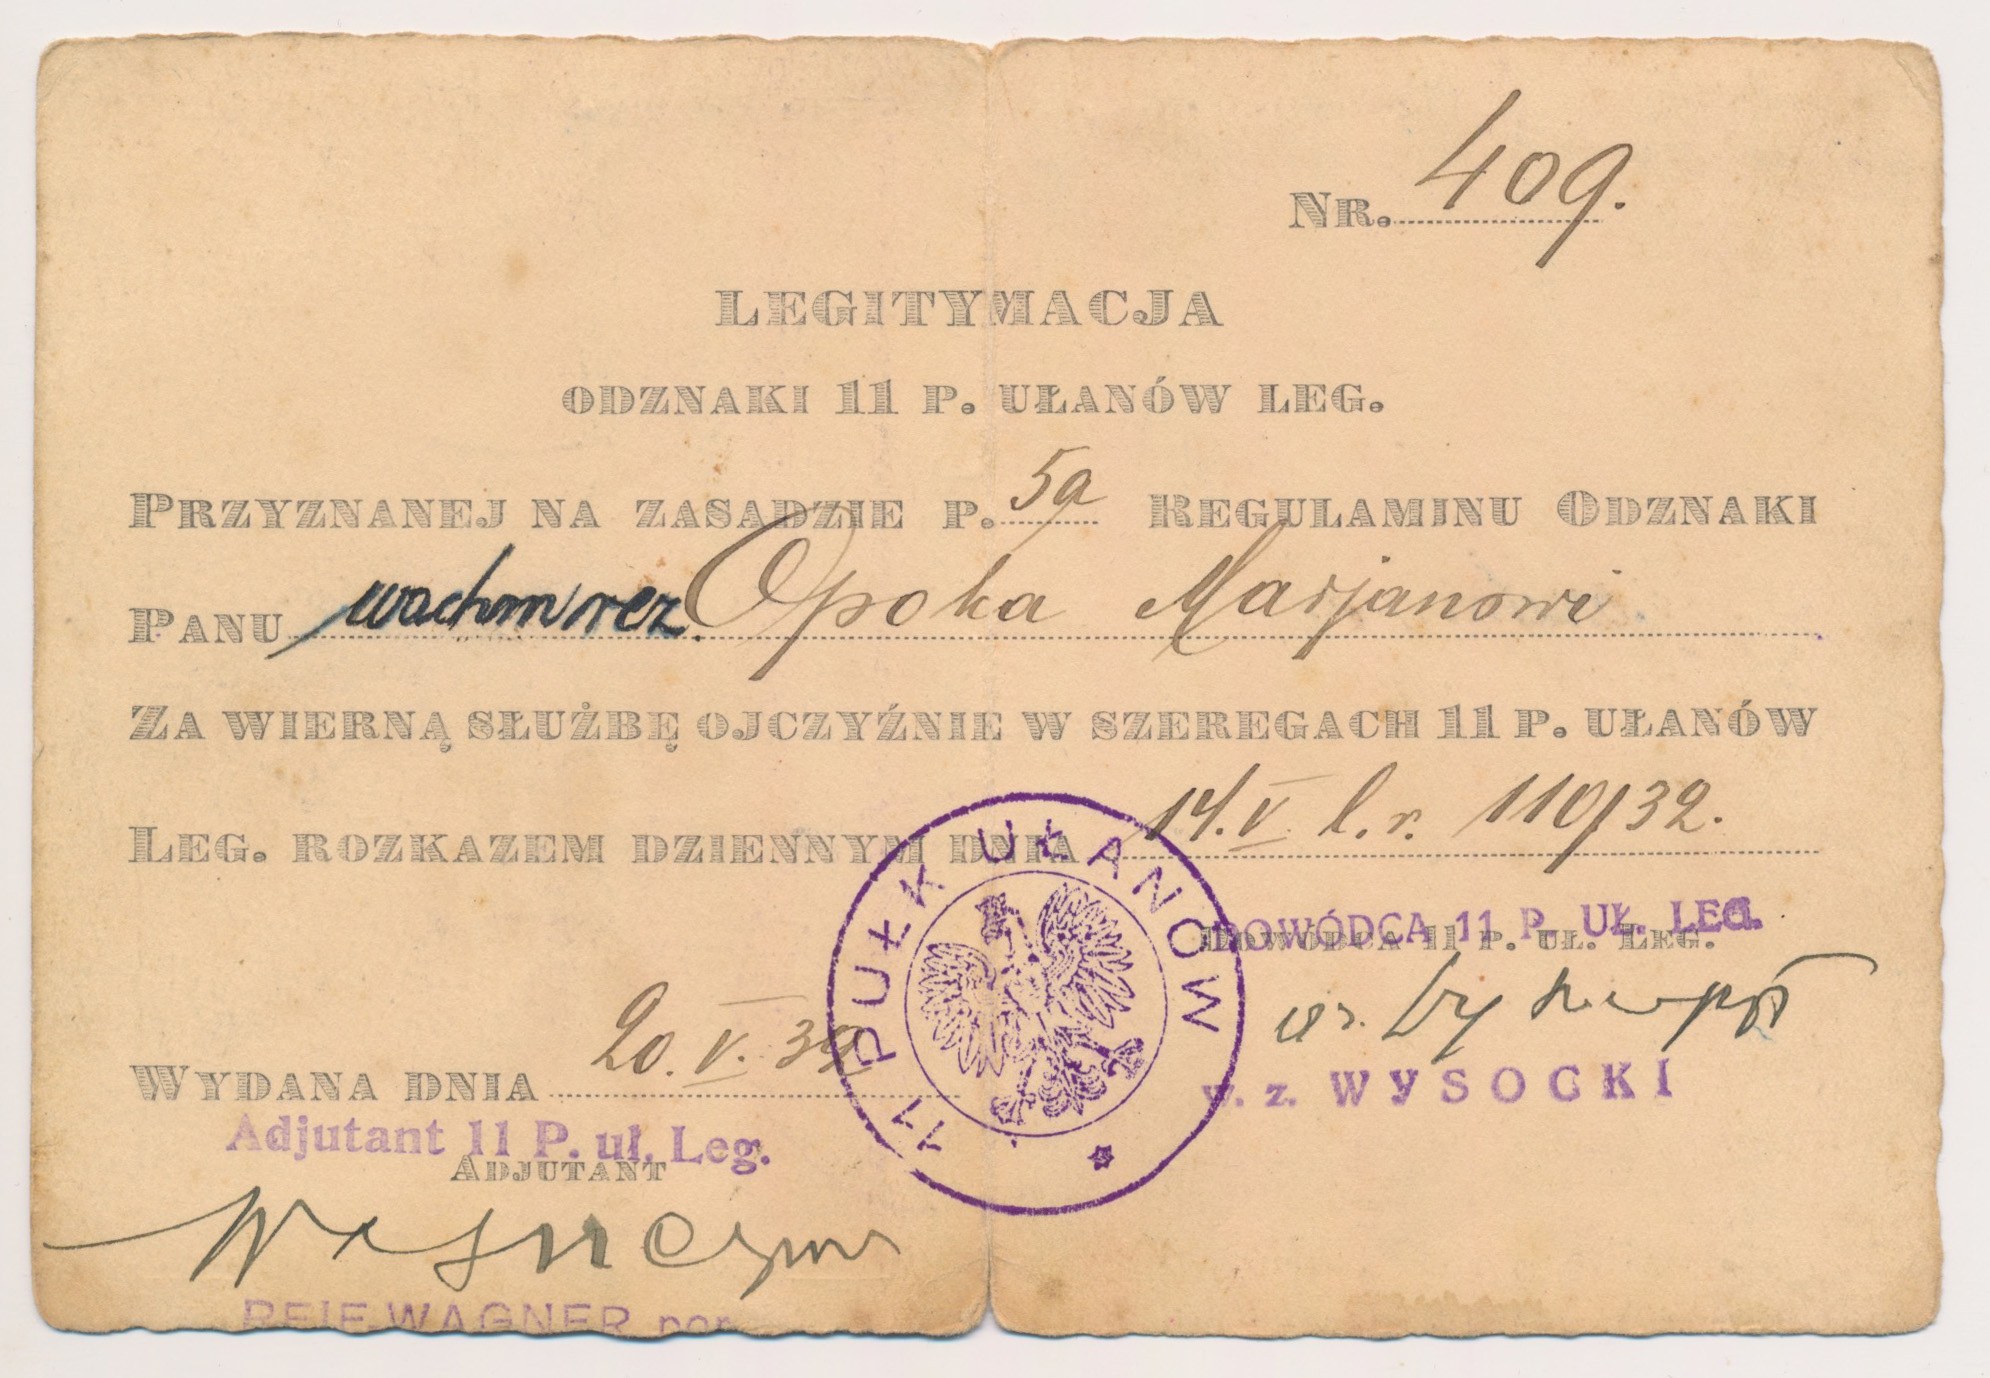 NR. 409.
LEGITYMACJA
ODZNAKI 11 P. UŁANÓW LEG.
PRZYZNANEJ NA ZASADZIE P. 5a REGULAMINU ODZNAKI
PANU wachm rez. Opoka Marjanowi
ZA WIERNĄ SŁUŻBĘ OJCZYŹNIE W SZEREGACH 11 P. UŁANÓW
LEG. ROZKAZEM DZIENNYM DNIA 14.V. l.r. 110/32.
11 PUŁK UŁANÓW
DOWÓDCA 11 P. UŁ. LEG.
DOWÓDCA 11 P. UŁ. LEG.
w. z. WYSOCKI
WYDANA DNIA 20.V.32
Adjutant 11 P. uł. Leg.
ADJUTANT
WAGNER por.